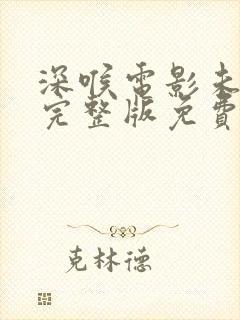 深喉電影未
完整版免費
克林德